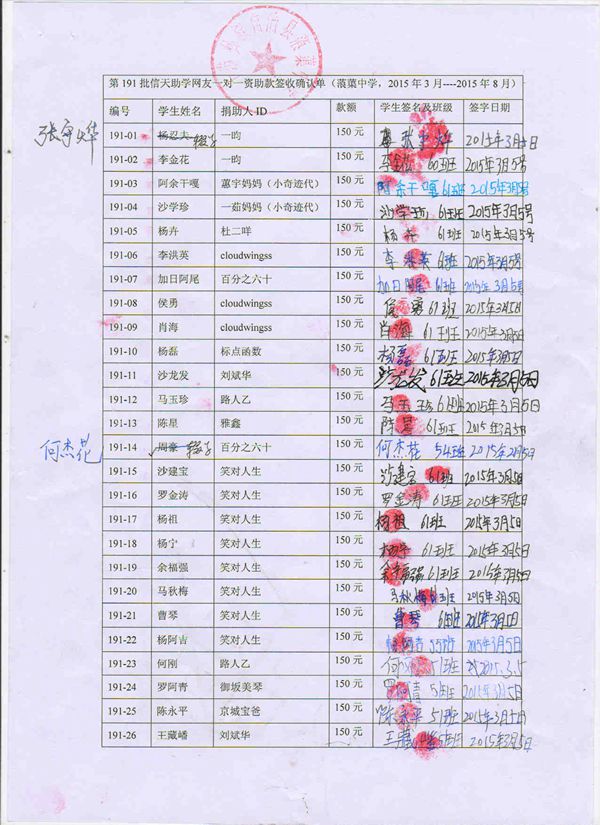 第 191 批信天助学网友一对一资助款签收确认单（蒗蕖中学，2015 年 3 月----2015 年 8 月）
编号 学生姓名 捐助人 ID 款额 学生签名及班级 签字日期
191-01 杨忍夫 辍学 一昀 150 元 2015年3月5日
191-02 李金花 一昀 150 元 李金花 60班 2015年3月5号
191-03 阿余干嘎 蕙宇妈妈（小奇迹代） 150 元 阿余干嘎 61班 2015年3月5号
191-04 沙学珍 一茹妈妈（小奇迹代） 150 元 沙学珍 61班 2015年3月5号
191-05 杨卉 杜二咩 150 元 杨卉 61班 2015年3月5号
191-06 李洪英 cloudwingss 150 元 李洪英 61班 2015年3月5号
191-07 加日阿尾 百分之六十 150 元 加日阿尾 61班 2015年3月5号
191-08 侯勇 cloudwingss 150 元 侯勇 61班 2015年3月5日
191-09 肖海 cloudwingss 150 元 肖海 61班 2015年3月5日
191-10 杨磊 标点函数 150 元 杨磊 61班 2015年3月5日
191-11 沙龙发 刘斌华 150 元 沙龙发 61班 2015年3月5日
191-12 马玉珍 路人乙 150 元 马玉珍 61班 2015年3月5日
191-13 陈星 雅鑫 150 元 陈星 61班 2015年3月5日
何杰花
191-14 周豪 辍学 百分之六十 150 元 何杰花 54班 2015年3月5日
191-15 沙建宝 笑对人生 150 元 沙建宝 61班 2015年3月5日
191-16 罗金涛 笑对人生 150 元 罗金涛 61班 2015年3月5日
191-17 杨祖 笑对人生 150 元 杨祖 61班 2015年3月5日
191-18 杨宁 笑对人生 150 元 杨宁 61班 2015年3月5日
191-19 余福强 笑对人生 150 元 余福强 61班 2015年3月5日
191-20 马秋梅 笑对人生 150 元 马秋梅 61班 2015年3月5日
191-21 曹琴 笑对人生 150 元 曹琴 61班 2015年3月5日
191-22 杨阿吉 笑对人生 150 元 杨阿吉 55班 2015年3月5日
191-23 何刚 路人乙 150 元 何刚 51班 2015.3.5
191-24 罗阿青 御坂美琴 150 元 罗阿青 51班 2015年3月5日
191-25 陈永平 京城宝爸 150 元 陈永平 51班 2015年3月5日
191-26 王藏嶓 刘斌华 150 元 51班 2015年3月5日